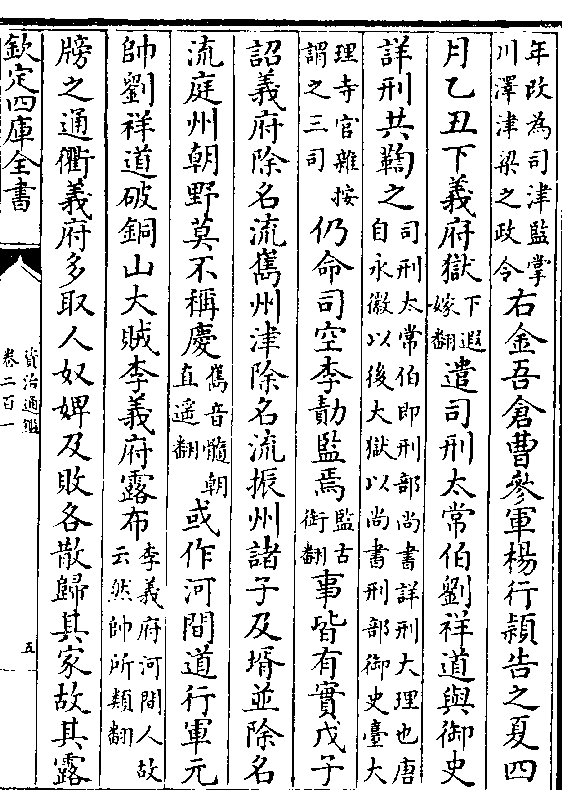 年改為司津監掌
川澤津梁之政令
右金吾倉曹參軍楊行穎告之夏四
月乙丑下義府獄
下遐
嫁翻
遣司刑太常伯劉祥道與御史
詳刑共鞫之
司刑太常伯即刑部尚書詳刑大理也唐
自永徽以後大獄以尚書刑部御史臺大
理寺官雜按
謂之三司
仍命司空李勣監焉
監古
銜翻
事皆有實戊子
詔義府除名流巂州津除名流振州諸子及壻並除名
流庭州朝野莫不稱慶
巂音髓朝
直遥翻
或作河間道行軍元
帥劉祥道破銅山大賊李義府露布
李義府河間人故
云然帥所類翻
牓之通衢義府多取人奴婢及敗各散歸其家故其露
欽定四庫全書
資治通鑑
卷二百一
五